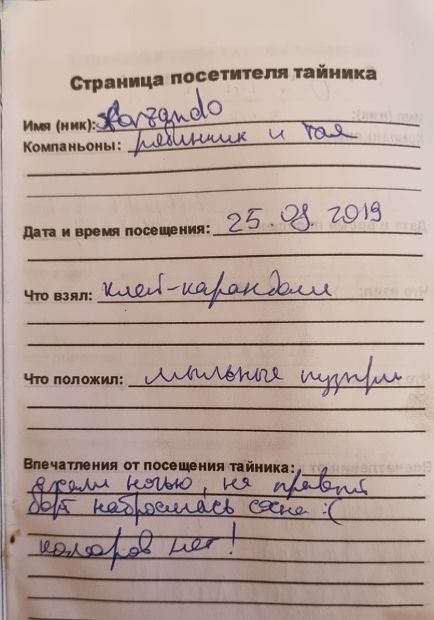 Страница посетителя тайника
Имя (ник): sforzando
Компаньоны: рябинник и тая
Дата и время посещения: 25 08 2019
Что взял: клей-карандаш
Что положил: мыльные пузыри
Впечатления от посещения тайника:
ехали ночью, на правый
борт набросилась сосна :(
комаров нет!